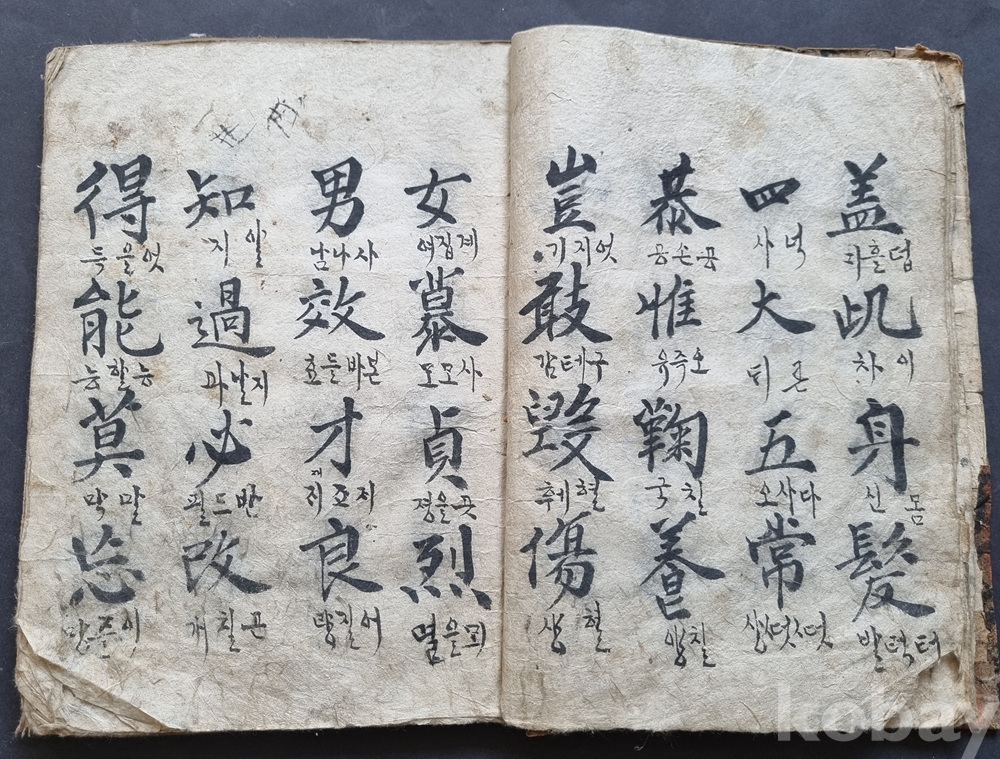 盖 덥흘 此 이차 身 몸신 髮 터럭발
四 넉사 大 큰 五 다사오 常 떳떳상
恭 공손공 惟 오주유 鞠 칠국 養 칠양
豈 엇지기 敢 구테감 毀 헐훼 傷 헐상
女 계집여 慕 사모모 貞 곳을정 烈 뫼을열
男 사나남 效 본바들효 才 지조지 재 良 어질량
知 알지 過 지날과 必 반드필 改 곤칠개
得 엇을득 能 능할능 莫 말막 忘 이즌망
kobay